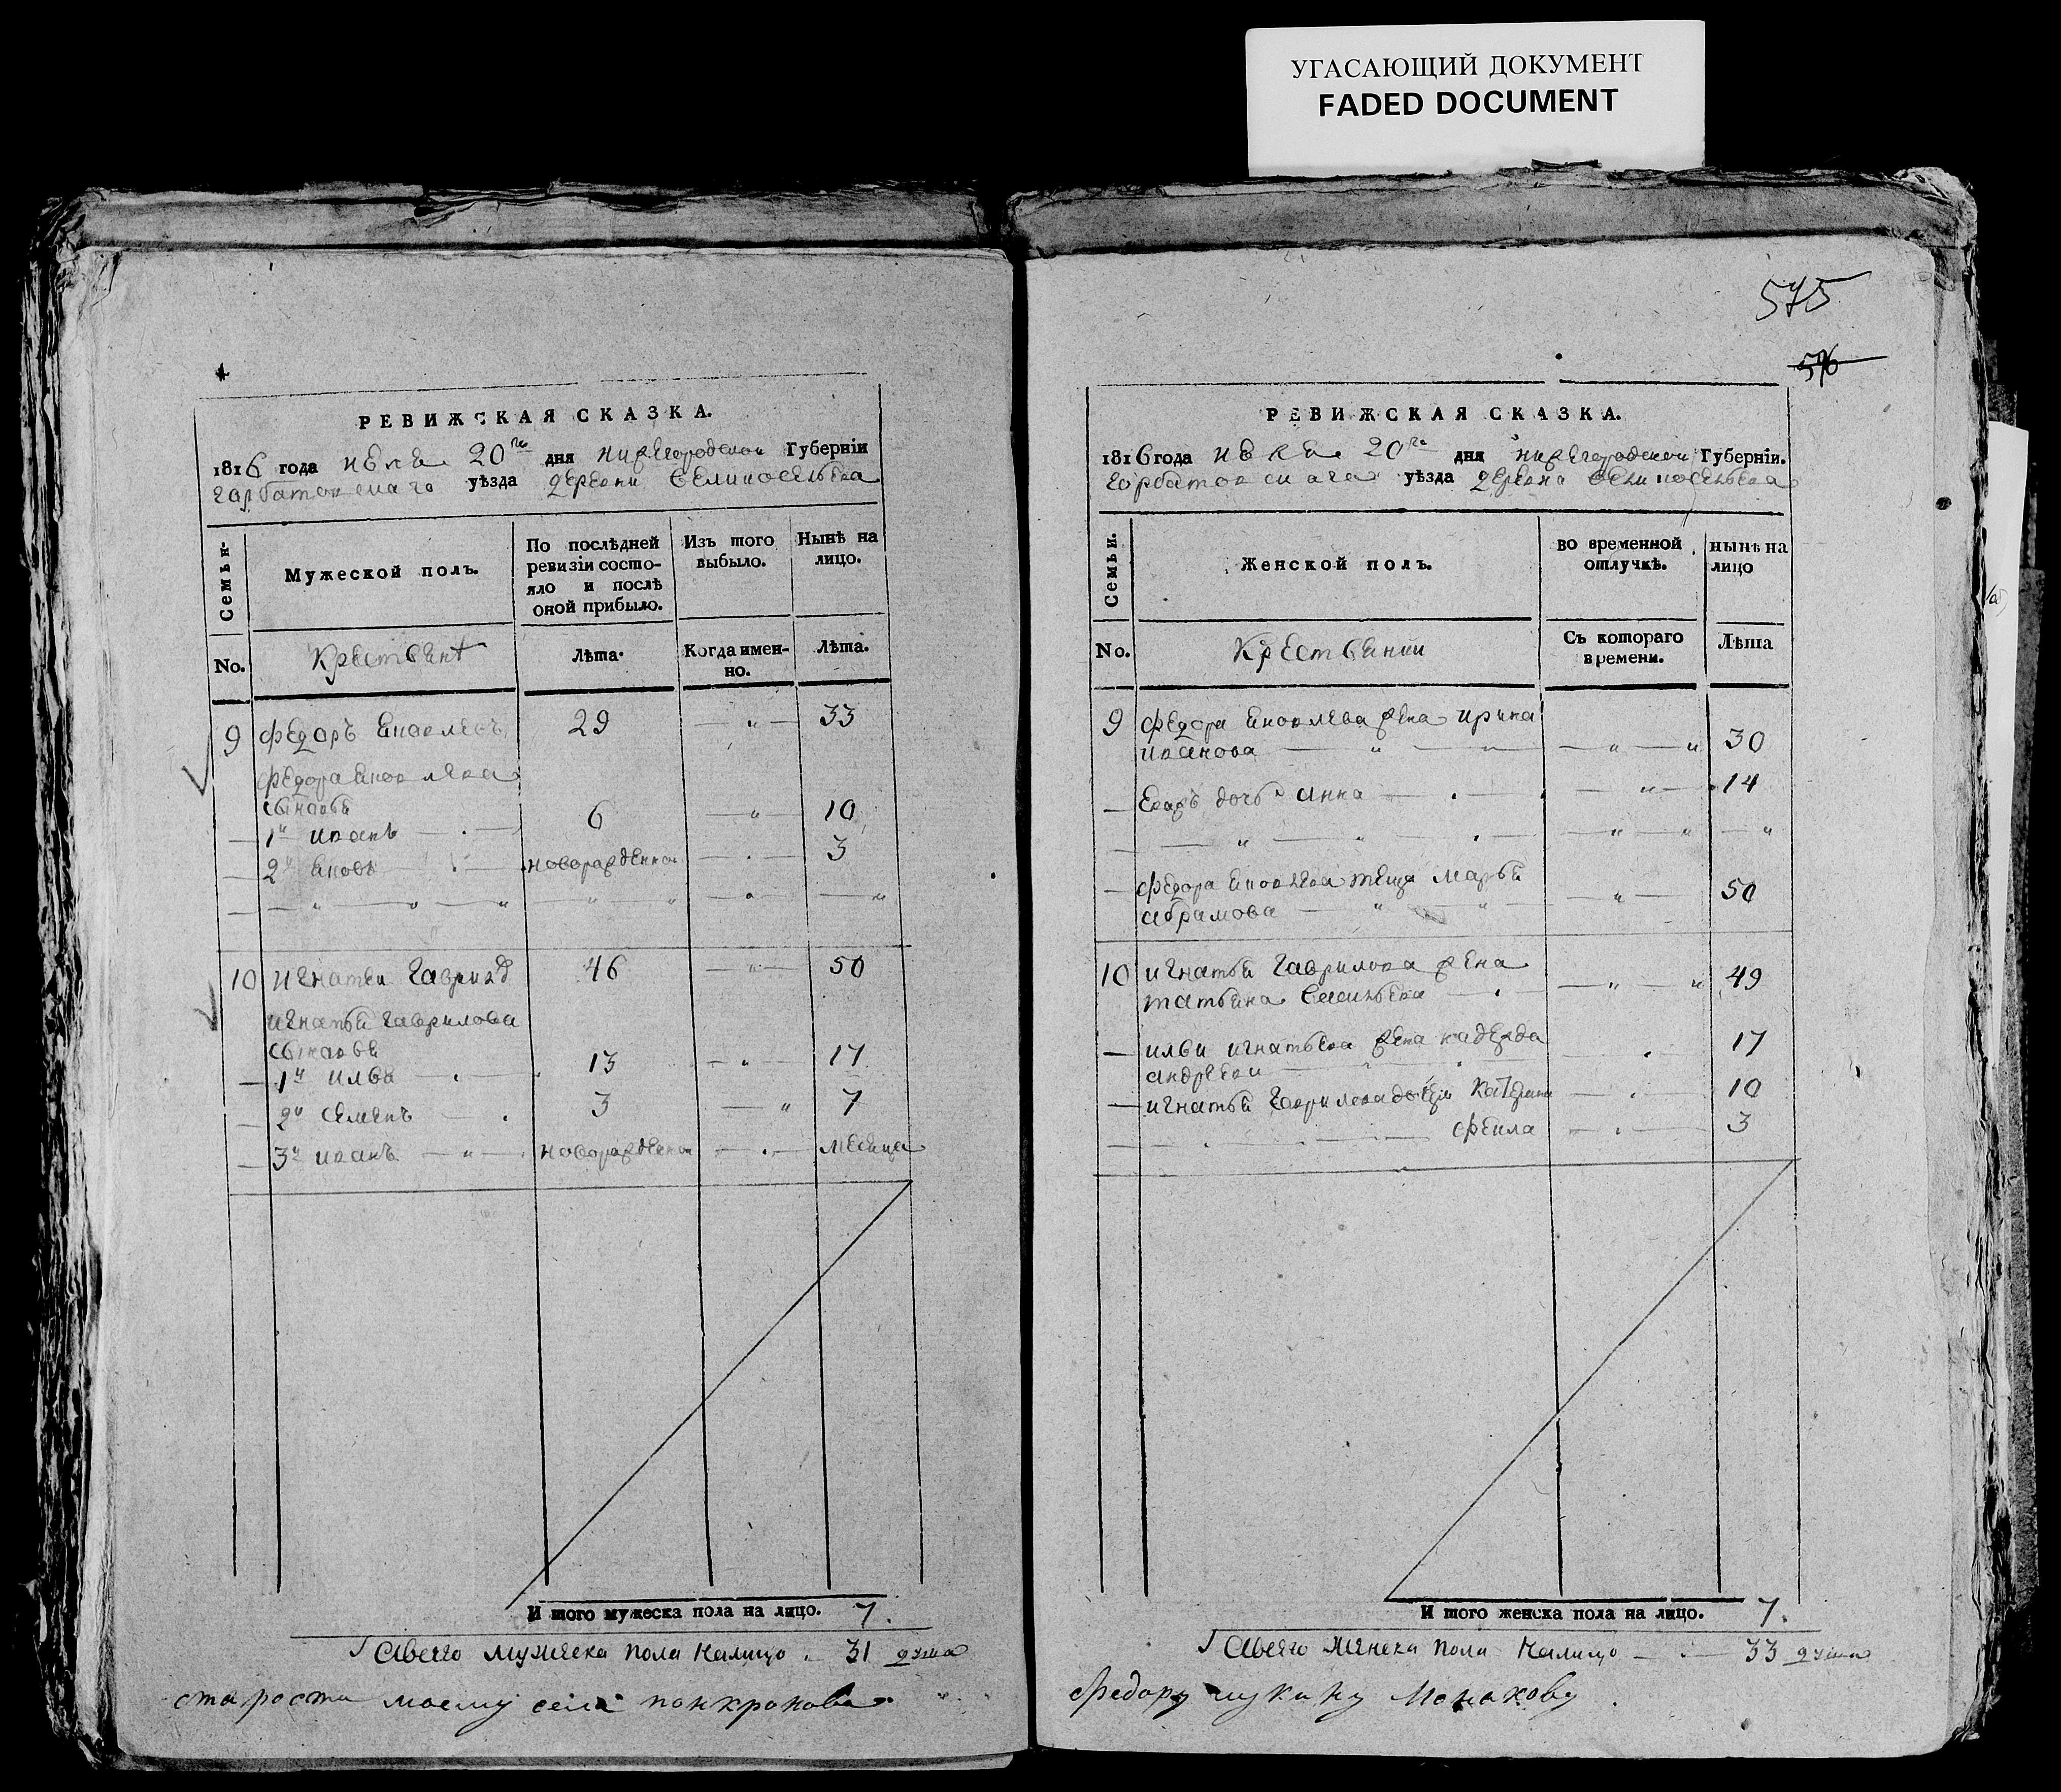 УГАСАЮЩИЙ ДОКУМЕНТ
FADED DOCUMENT
РЕВИЖСКАЯ СКАЗКА.
1816 года 20го дня нижегородской Губерніи
горбатовскаго уѣзда деревни
Семьи.
Мужеской полъ.
По послѣдней ревизіи состояло и послѣ оной прибыло.
Изъ того выбыло.
Нынѣ на лицо.
No.
Лѣта.
Когда именно.
Лѣта.
9 федоръ яковлевъ 29 — „ — 33
федора яковлева
сыновья
— 1й иванъ — 6 — „ — 10
— 2й яковъ — новорожденной — 3
10 игнатьй гаврилъ 46 — „ — 50
игнатьй гаврилова
сыновья
— 1й илья — 13 — 17
— 2й семенъ — 3 — „ 7
— 3й иванъ — „ — новорожденной — месяца
И того мужеска пола на лицо. 7.
Авсего мужеска пола налицо . — 31 душа
старосты моему села панкратова
575
576
РЕВИЖСКАЯ СКАЗКА.
1816 года 20го дня нижегородской Губерніи.
горбатовскаго уѣзда деревни
Семьи.
Женской полъ.
во временной отлучкѣ.
нынѣ на лицо
No.
Съ котораго времени.
Лѣта
9 федора яковлева жена ирина
иванова — „ — „ — 30
— Еѣаъ дочь анна — 14
— федора яковлева теща марья
абрамова — „ — „ — 50
10 игнатьй гаврилова жена
татьяна васильева — 49
— ильи игнатьева жена надежда 17
андреева
— игнатьй гаврилова дочери катерина — 10
фекла — 3
И того женска пола на лицо. 7.
Авсего женска пола налицо — 33 душа
федору лукину Монахову